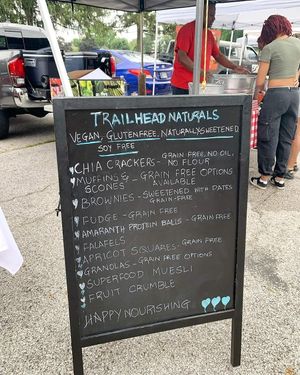 TRAILHEAD NATURALS
VEGAN, GLUTENFREE, NATURALLY SWEETENED
SOY FREE
CHIA CRACKERS - GRAIN FREE, NO OIL,
NO FLOUR
MUFFINS & - GRAIN FREE OPTIONS
SCONES AVAILABLE
BROWNIES - SWEETENED WITH DATES
GRAIN-FREE
FUDGE - GRAIN FREE
AMARANTH PROTEIN BALLS - GRAIN FREE
FALAFELS
APRICOT SQUARES - GRAIN FREE
GRANOLAS - GRAIN FREE OPTIONS
SUPERFOOD MUESLI
FRUIT CRUMBLE
HAPPY NOURISHING